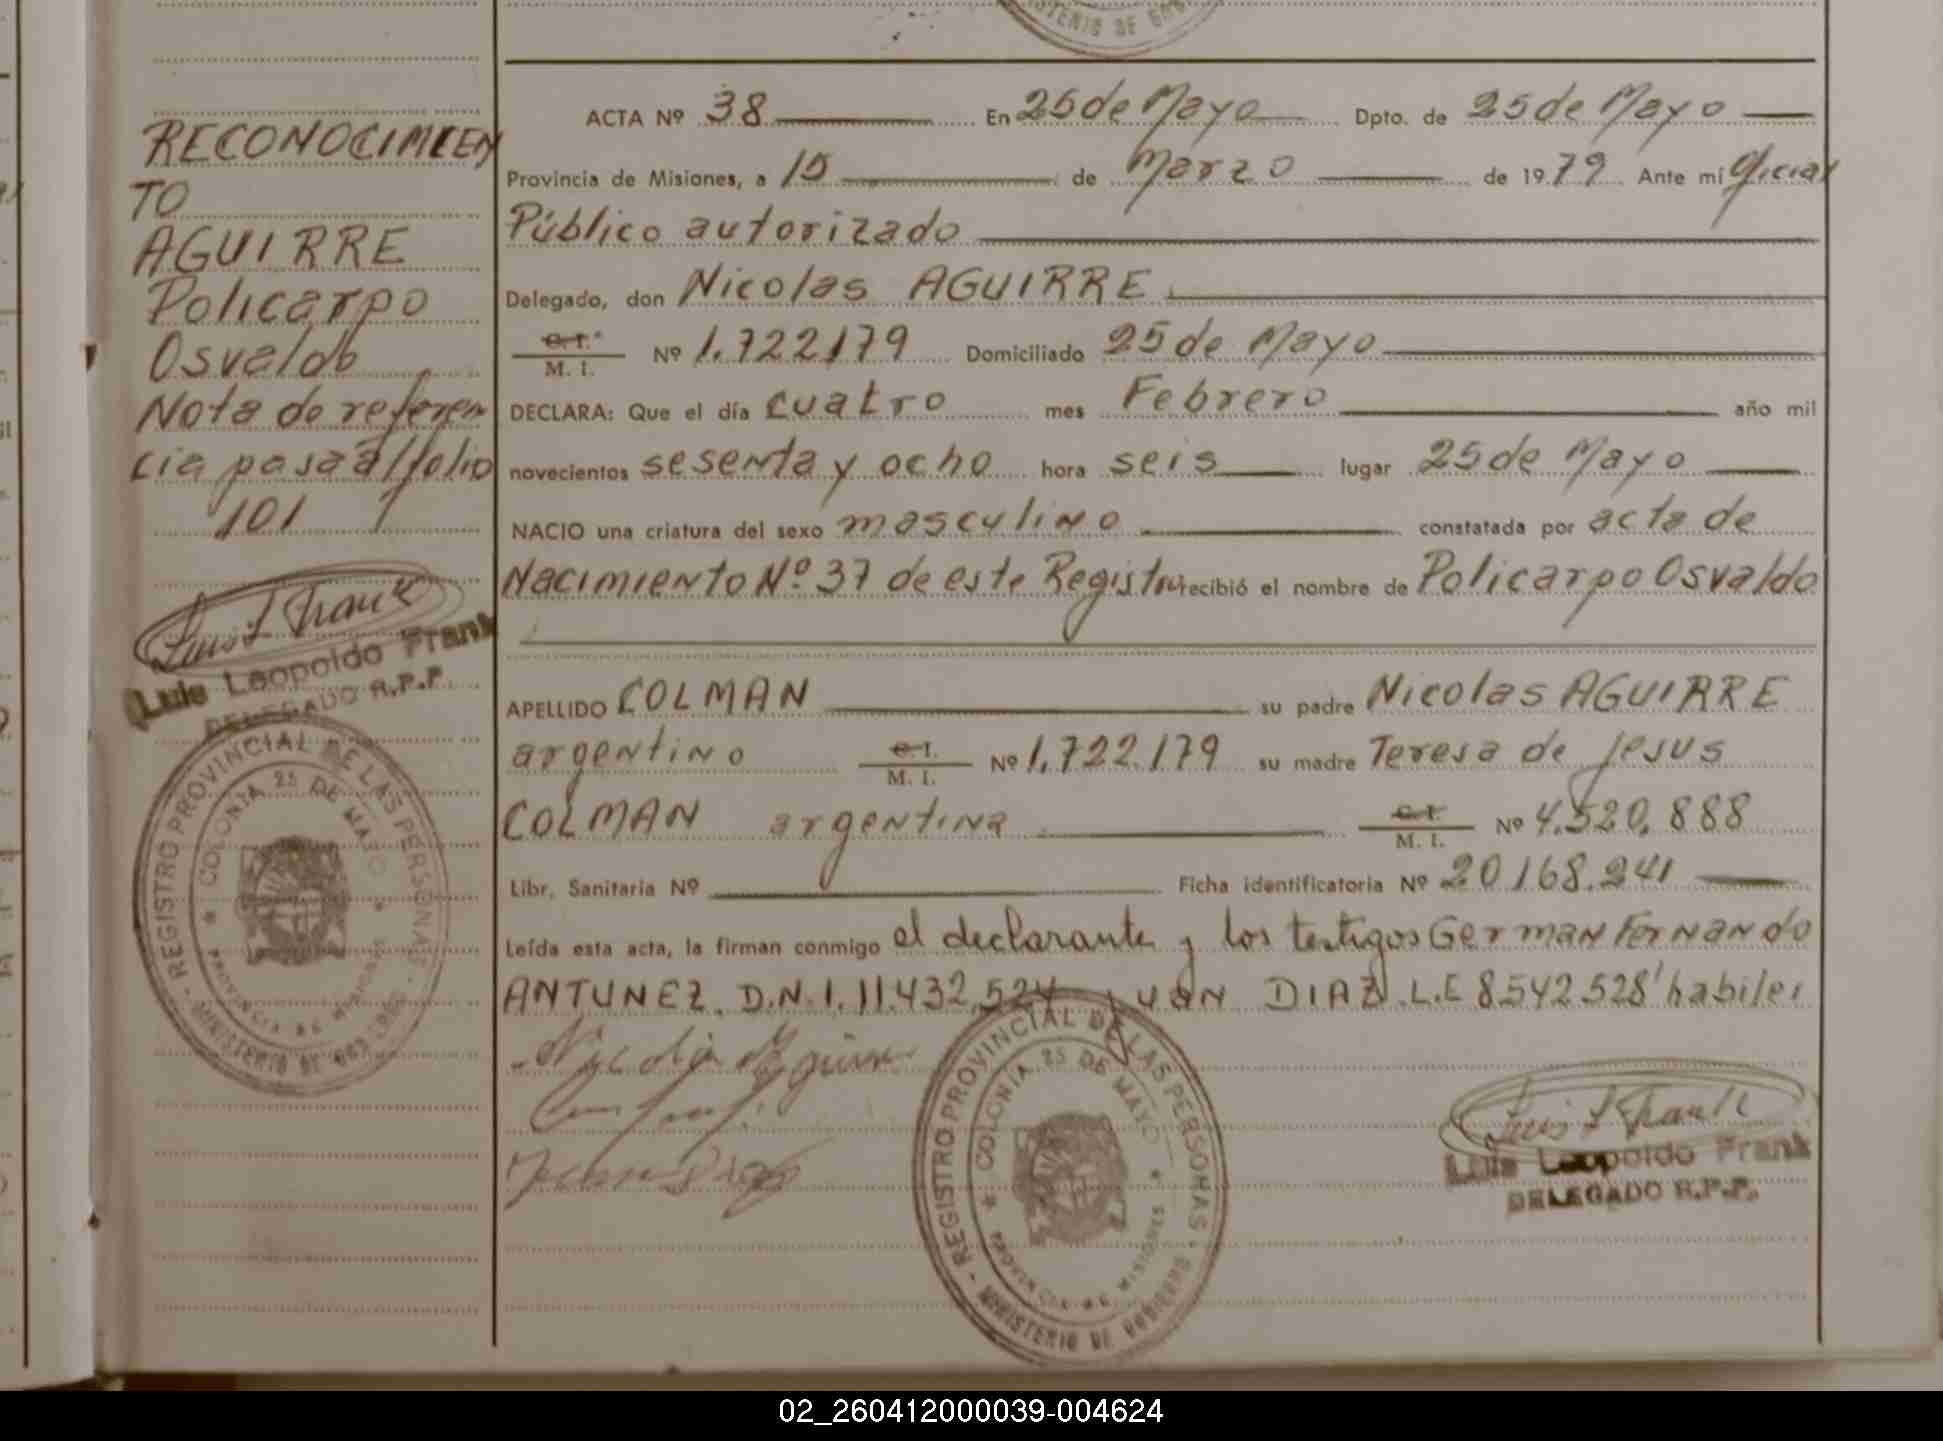 MINISTERIO DE GOBIERNO
RECONOCIMIEN
TO
AGUIRRE
Policarpo
Osvaldo
Nota de referen
cia pasa al folio
101
Luis L Frank
Luis Leopoldo Frank
DELEGADO R.P.P.
REGISTRO PROVINCIAL DE LAS PERSONAS - MINISTERIO DE GOBIERNO -
COLONIA 25 DE MAYO * PROVINCIA DE MISIONES *
ACTA Nº 38 En 25 de Mayo Dpto. de 25 de Mayo
Provincia de Misiones, a 15 de Marzo de 1979 Ante mí Oficial
Público autorizado
Delegado, don Nicolas AGUIRRE
C. I.
M. I. Nº 1.722.179 Domiciliado 25 de Mayo
DECLARA: Que el día cuatro mes Febrero año mil
novecientos sesenta y ocho hora seis lugar 25 de Mayo
NACIO una criatura del sexo masculino constatada por acta de
Nacimiento Nº 37 de este Registro recibió el nombre de Policarpo Osvaldo
APELLIDO COLMAN su padre Nicolas AGUIRRE
argentino C. I. M. I. Nº 1.722.179 su madre Teresa de Jesus
COLMAN argentina C. I. M. I. Nº 4.520.888
Libr. Sanitaria Nº Ficha identificatoria Nº 20.168.241
Leída esta acta, la firman conmigo el declarante y los testigos German Fernando
ANTUNEZ D.N.I. 11.432.524 Juan DIAZ L.E 8542528 habiles
Nicolas Aguirre
REGISTRO PROVINCIAL DE LAS PERSONAS - MINISTERIO DE GOBIERNO -
COLONIA 25 DE MAYO * PROVINCIA DE MISIONES *
Luis L Frank
Luis Leopoldo Frank
DELEGADO R.P.P.
02_260412000039-004624